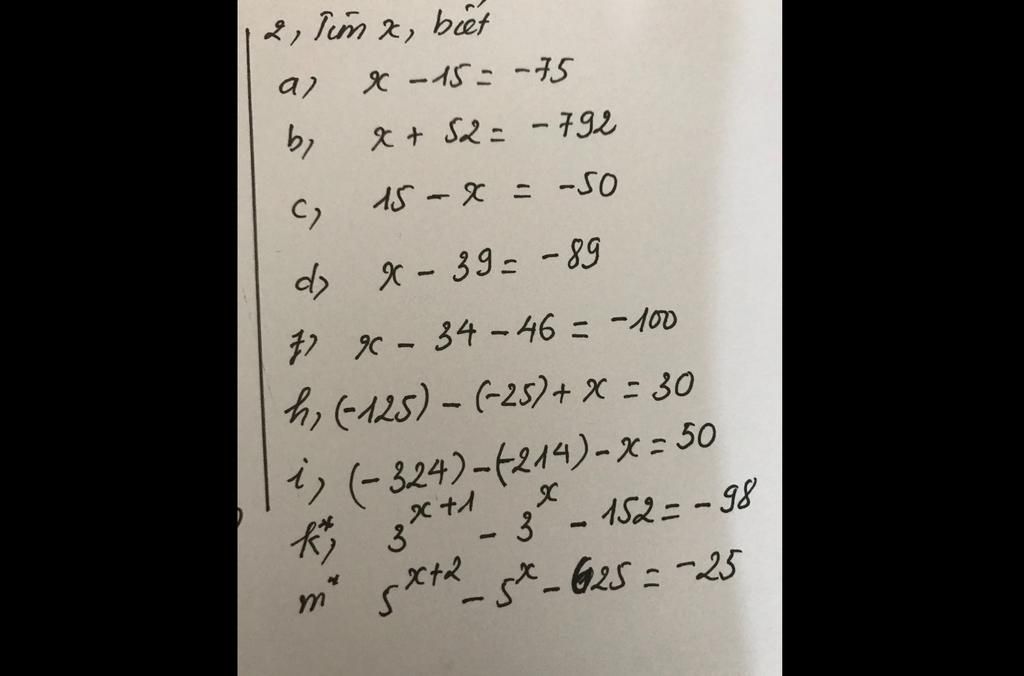 2, Tìm x, biết
a) x - 15 = -75
b, x + 52 = - 792
c, 15 - x = -50
d) x - 39 = - 89
f) x - 34 - 46 = -100
h, (-125) - (-25) + x = 30
i, (- 324) - (-214) - x = 50
k*, 3^{x+1} - 3^x - 152 = - 98
m* 5^{x+2} - 5^x - 625 = -25